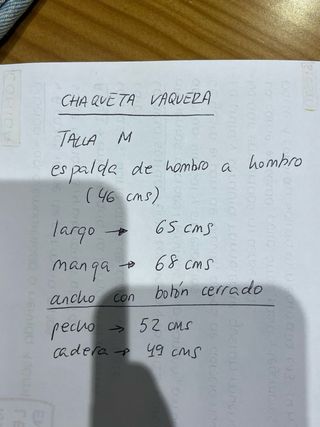 CHAQUETA VAQUERA
TALLA M
espalda de hombro a hombro
(46 cms)
largo → 65 cms
manga → 68 cms
ancho con botón cerrado
pecho → 52 cms
cadera → 49 cms